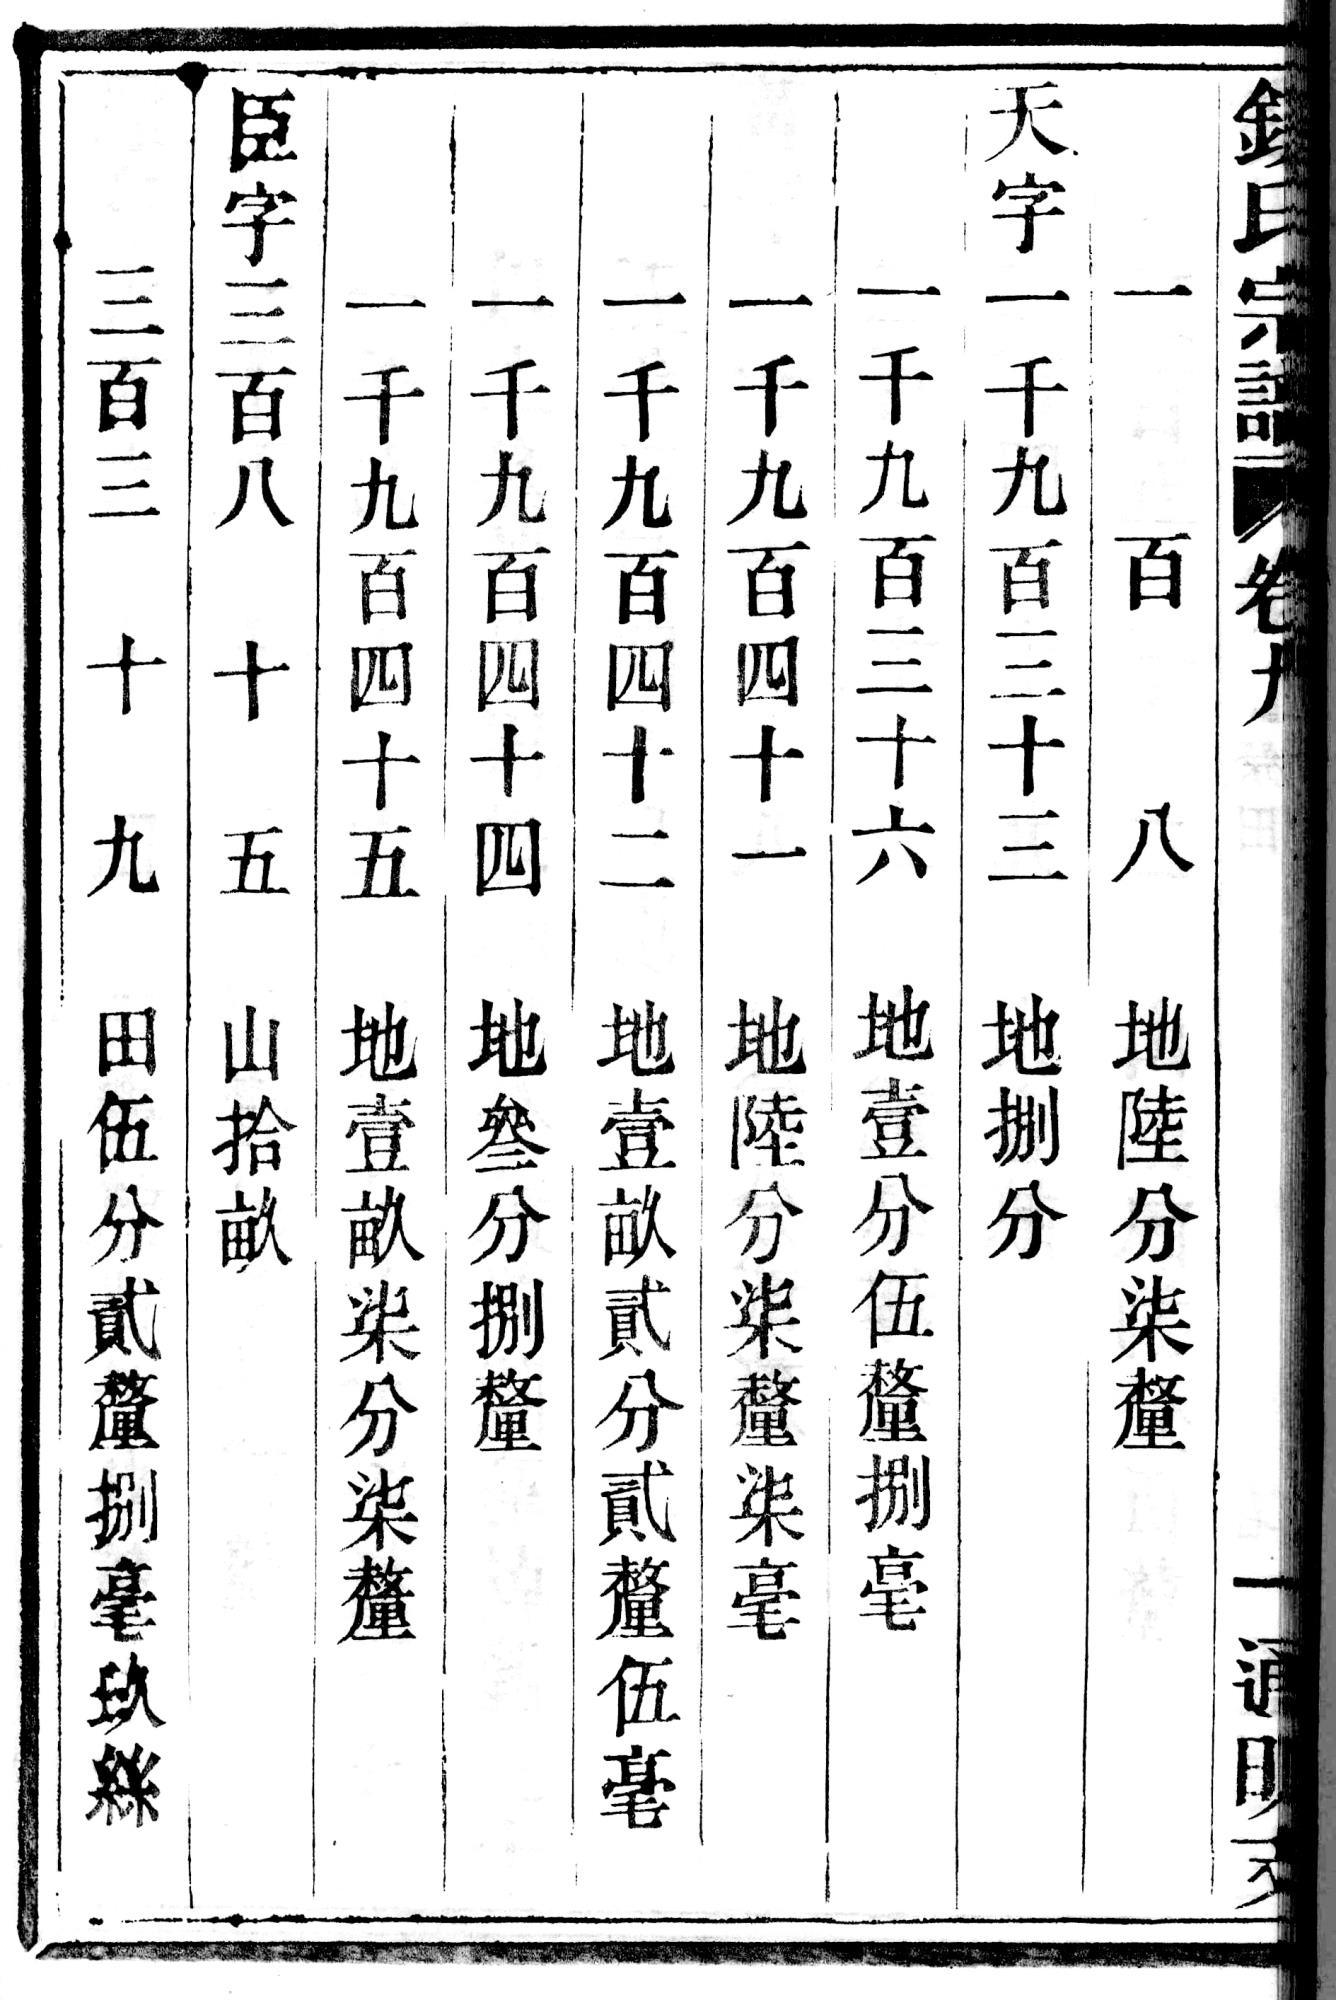 氏宗譜 卷九 一 通明
一百八 地陸分柒釐
天字一千九百三十三 地捌分
一千九百三十六 地壹分伍釐捌毫
一千九百四十一 地陸分柒釐柒毫
一千九百四十二 地壹畝貳分貳釐伍毫
一千九百四十四 地叄分捌釐
一千九百四十五 地壹畝柒分柒釐
臣字三百八十五 山拾畝
三百三十九 田伍分貳釐捌毫玖絲